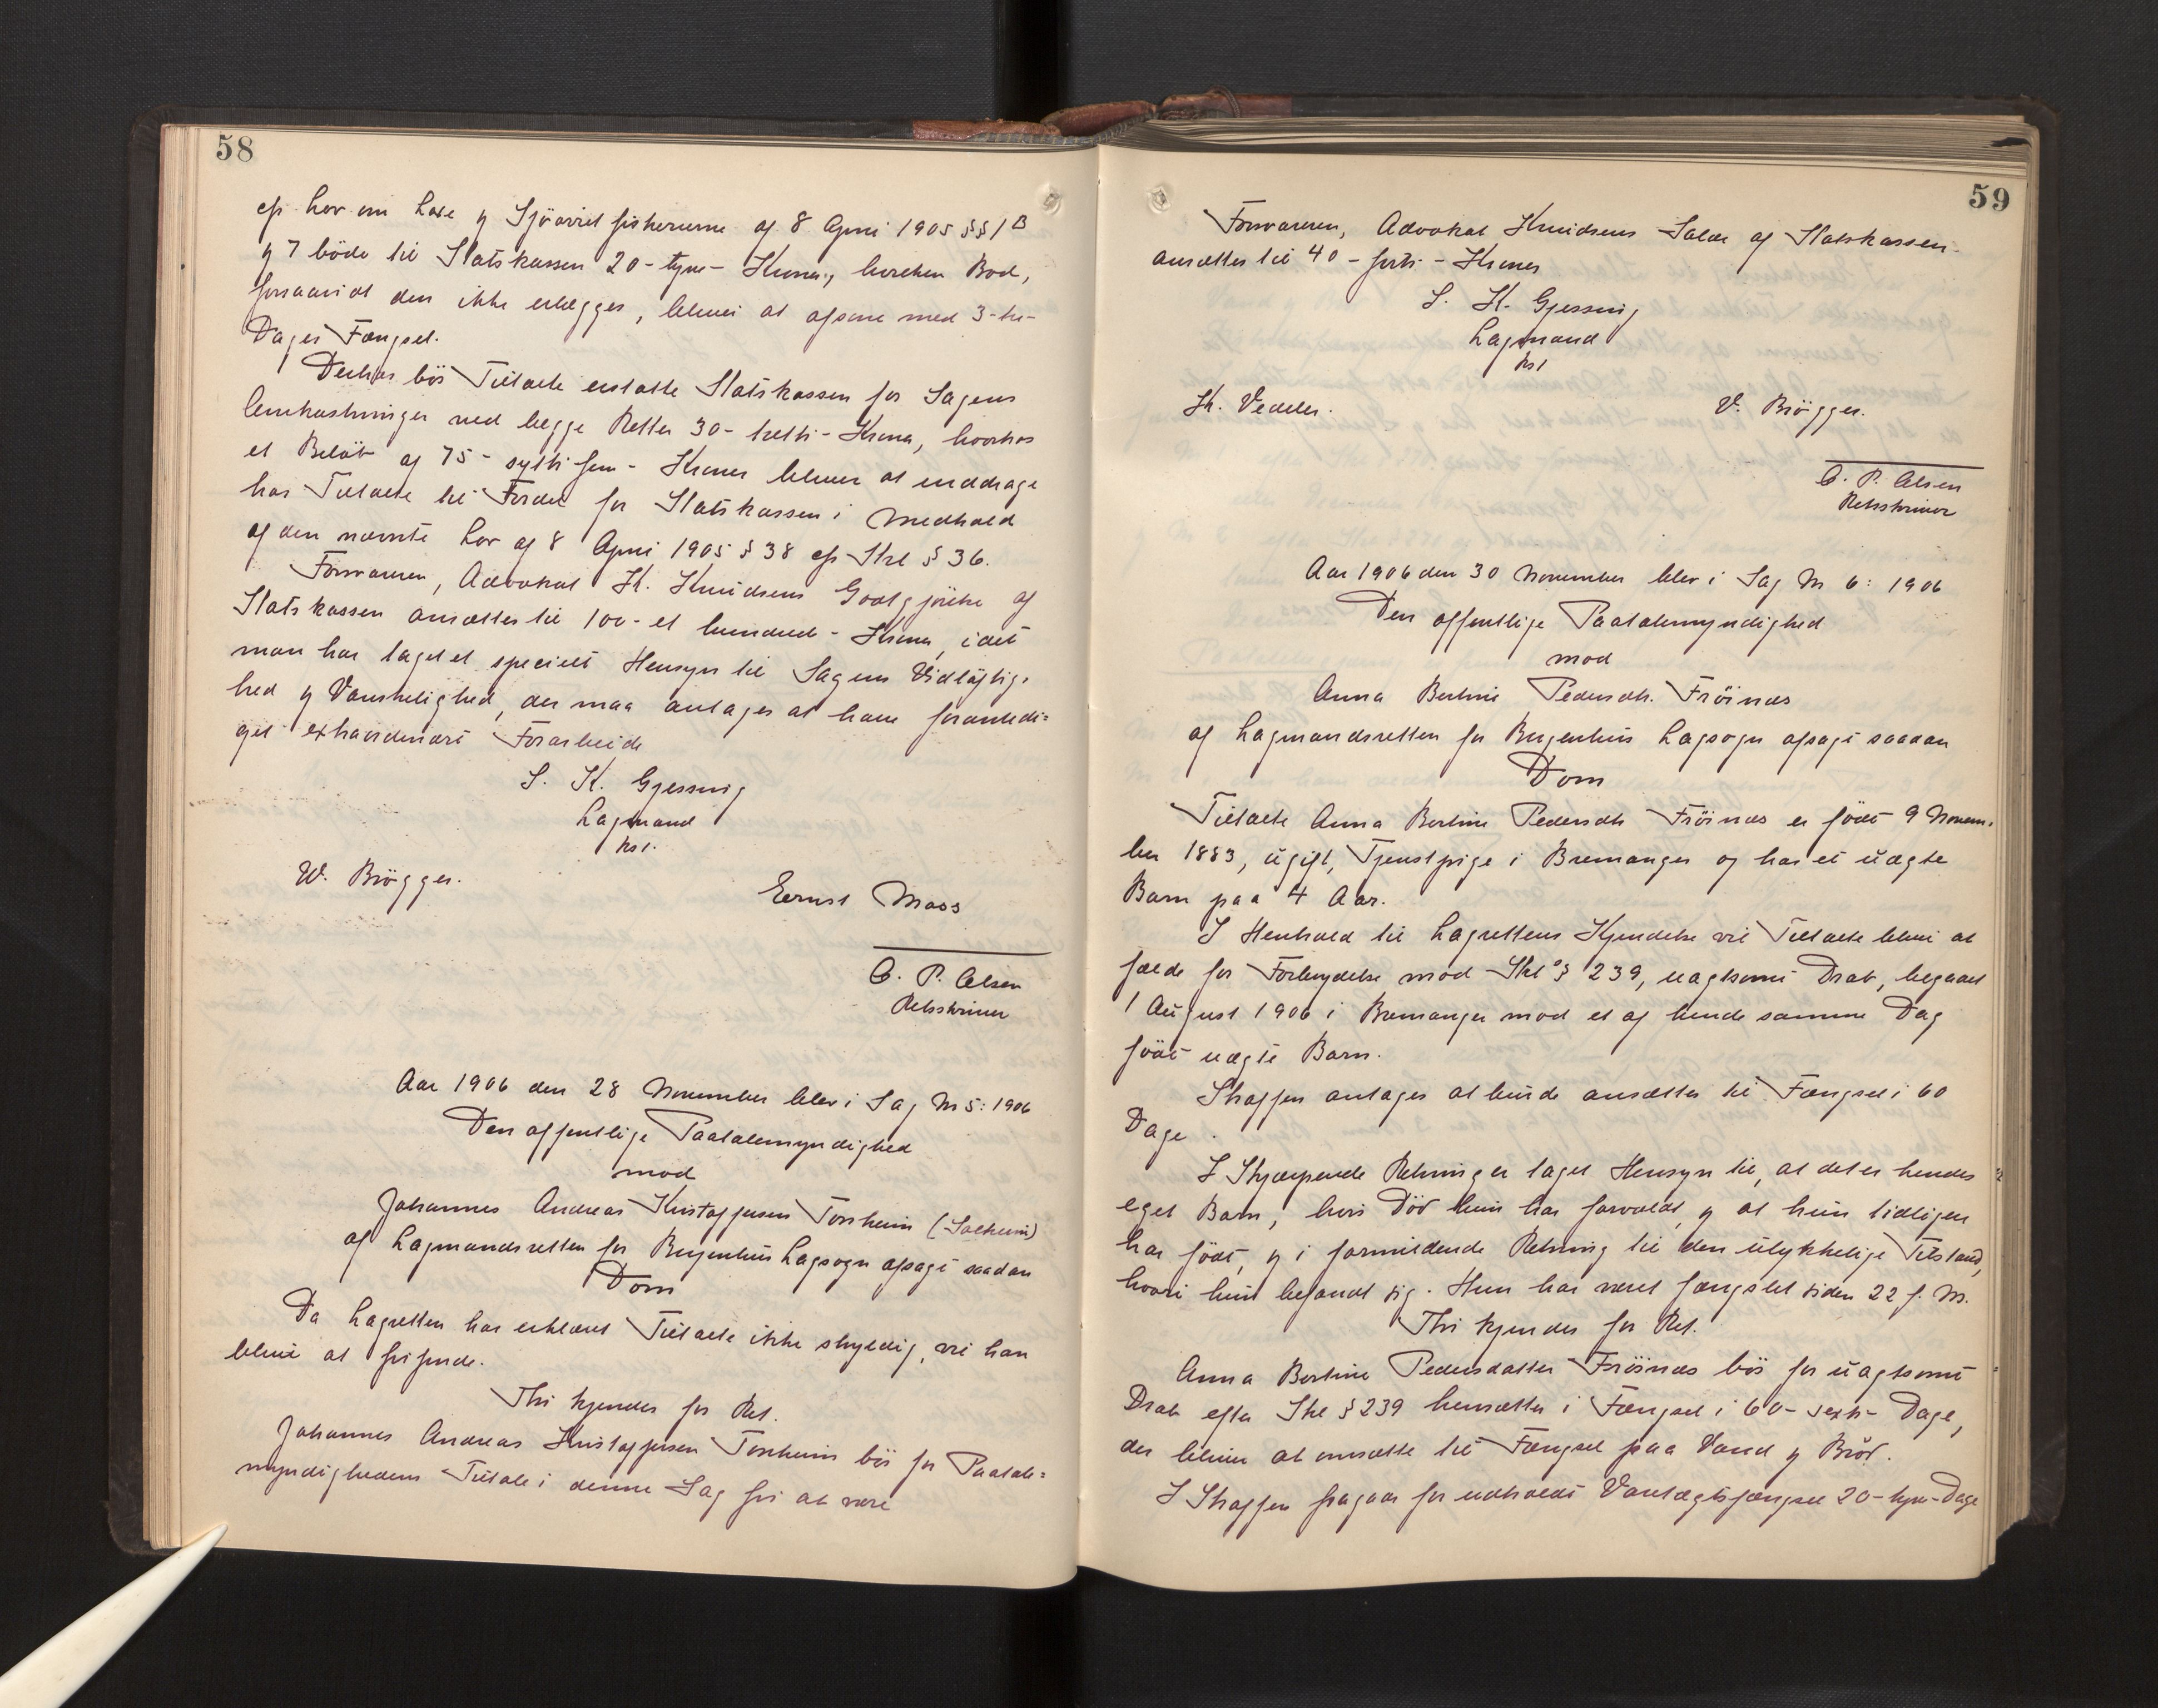 58
cfr Lov om Laxe og Sjöörret fiskerierne af 8 April 1905 §§ 1 B
og 7 böde til Statskassen 20 - tyve - Kroner, hvilken Bod,
forsaavidt den ikke erlægges, bliver at afsone med 3 - tre -
Dages Fængsel.
Derhos bör Tiltalte erstatte Statskassen for Sagens
Omkostninger ved begge Retter 30 - tretti - Kroner, hvorhos
et Belöb af 75 - sytti fem - Kroner bliver at inddrage
hos Tiltalte til Fordel for Statskassen i Medhold
af den nævnte Lov af 8 April 1905 § 38 cfr Strl § 36.
Forsvareren, Advokat K. Knudsens Godtgjörelse af
Statskassen ansættes til 100 - et hundred - Kroner, idet
man har taget et specielt Hensyn til Sagens Vidlöftig-
hed og Vanskelighed, der maa antages at have foranledi=
get extraordinært Forarbeide
S. K. Gjessing
Lagmand
kst.
W. Brögger.
Ernst Moss
O. P. Olsen
Retsskriver
Aar 1906 den 28 November blev i Sag No 5: 1906
Den offentlige Paatalemyndighed
mod
Johannes Andreas Kristoffersen Torsheim (Solheim)
af Lagmandsretten for Bergenhus Lagsogn afsagt saadan
Dom
Da Lagretten har erklæret Tiltalte ikke skyldig, vil han
blive at frifinde.
Thi kjendes for Ret.
Johannes Andreas Kristoffersen Torsheim bör for Paatale=
myndighedens Tiltale i denne Sag fri at være
59
Forsvareren, Advokat Knudsens Salær af Statskassen
ansættes til 40 - forti - Kroner
S. K. Gjessing
Lagmand
kst
K. Vedeler.
V. Brögger.
O. P. Olsen
Retsskriver
Aar 1906 den 30 November blev i Sag No 6: 1906
Den offentlige Paatalemyndighed
mod
Anna Bertine Pedersdtr. Fröinæs
af Lagmandsretten for Bergenhus Lagsogn afsagt saadan
Dom
Tiltalte Anna Bertine Pedersdtr Fröinæs er födt 9 Novem-
ber 1883, ugift, Tjenestpige i Bremanger og har et uægte
Barn paa 4 Aar.
I Henhold til Lagrettens Kjendelse vil Tiltalte blive at
fælde for Forbrydelse mod Strl § 239, uagtsomt Drab, begaaet
1 August 1906 i Bremanger mod et af hende samme Dag
födt uægte Barn.
Straffen antages at burde ansættes til Fængsel i 60
Dage.
I Skjærpende Retning er taget Hensyn til, at det er hendes
eget Barn, hvis Död hun har forvoldt, og at hun tidligere
har födt, og i formildende Retning til den ulykkelige Tilstand,
hvori hun befandt sig. Hun har været fængslet siden 22 f. M.
Thi kjendes for Ret.
Anna Bertine Pedersdatter Fröinæs bör for uagtsomt
Drab efter Strl § 239 hensættes i Fængsel i 60 - sexti - Dage,
der bliver at omsætte til Fængsel paa Vand og Bröd.
I Straffen fragaar for udholdt Varetægtsfængsel 20 - tyve - Dage